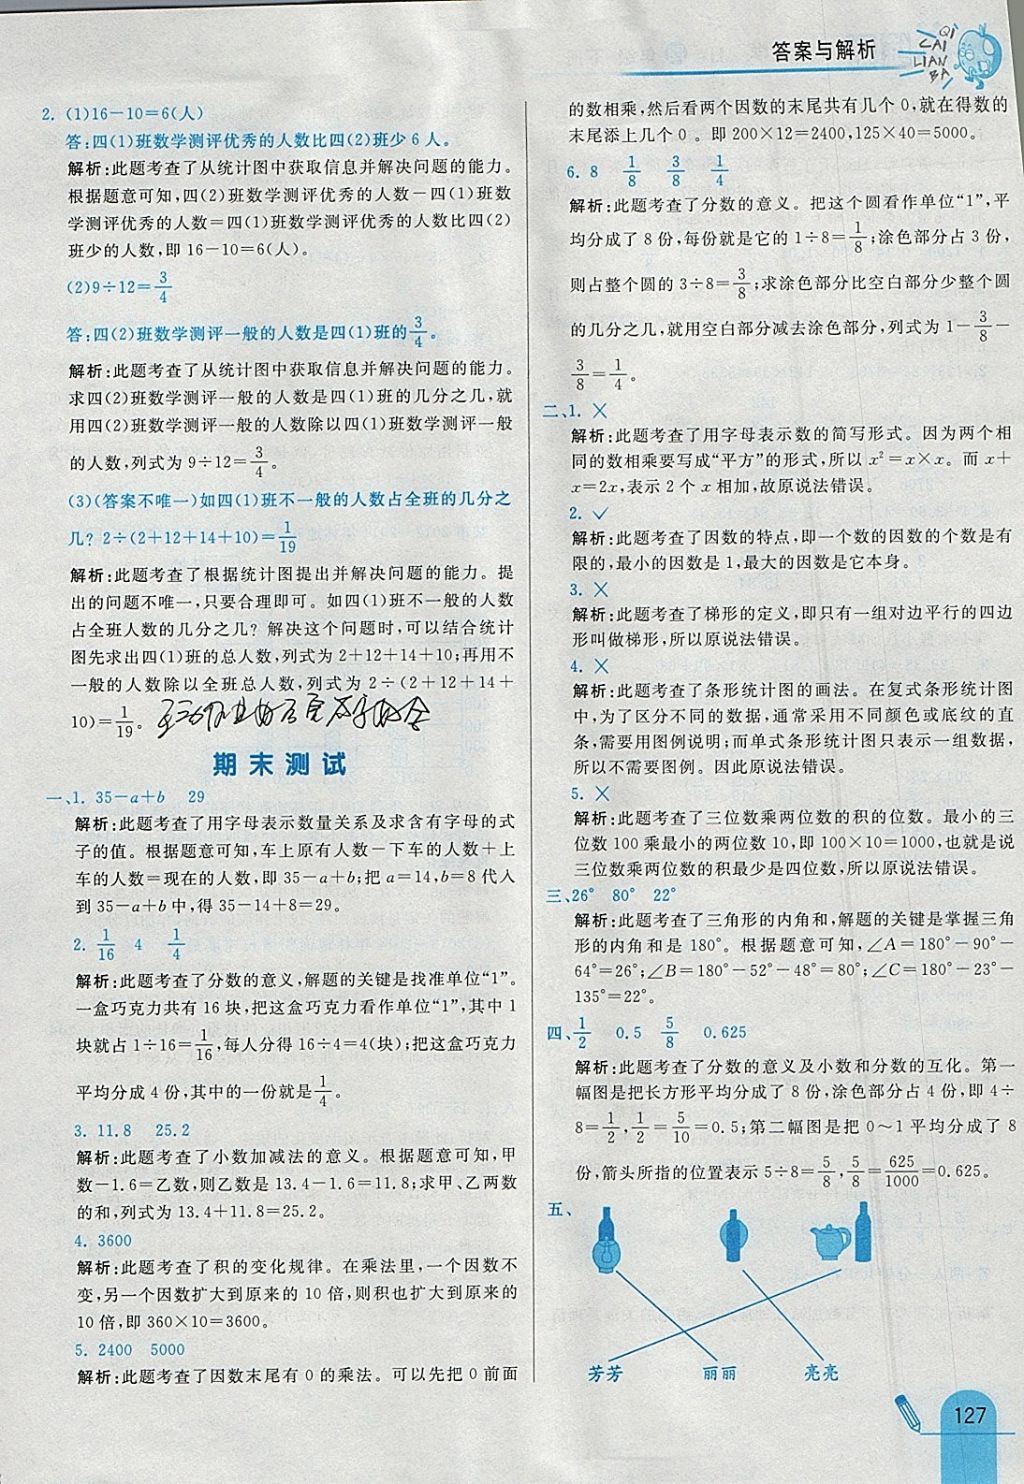 答案与解析
QI
CAI
LIAN
BA
2. (1)16－10＝6(人)
答:四(1)班数学测评优秀的人数比四(2)班少 6 人。
解析:此题考查了从统计图中获取信息并解决问题的能力。
根据题意可知,四(2)班数学测评优秀的人数－四(1)班数
学测评优秀的人数＝四(1)班数学测评优秀的人数比四(2)
班少的人数,即 16－10＝6(人)。
(2)9÷12＝3/4
答:四(2)班数学测评一般的人数是四(1)班的3/4。
解析:此题考查了从统计图中获取信息并解决问题的能力。
求四(2)班数学测评一般的人数是四(1)班的几分之几,就
用四(2)班数学测评一般的人数除以四(1)班数学测评一般
的人数,列式为 9÷12＝3/4。
(3)(答案不唯一)如四(1)班不一般的人数占全班的几分之
几? 2÷(2＋12＋14＋10)＝1/19
解析:此题考查了根据统计图提出并解决问题的能力。提
出的问题不唯一,只要合理即可。如四(1)班不一般的人数
占全班人数的几分之几? 解决这个问题时,可以结合统计
图先求出四(1)班的总人数,列式为 2＋12＋14＋10;再用不
一般的人数除以全班总人数,列式为 2÷(2＋12＋14＋
10)＝1/19。
期末测试
一、1. 35－a＋b 29
解析:此题考查了用字母表示数量关系及求含有字母的式
子的值。根据题意可知,车上原有人数－下车的人数＋上
车的人数＝现在的人数,即 35－a＋b;把 a＝14,b＝8 代入
到 35－a＋b 中,得 35－14＋8＝29。
2. 1/16 4 1/4
解析:此题考查了分数的意义,解题的关键是找准单位“1”。
一盒巧克力共有 16 块,把这盒巧克力看作单位“1”,其中 1
块就占 1÷16＝1/16,每人分得 16÷4＝4(块);把这盒巧克力
平均分成 4 份,其中的一份就是1/4。
3. 11.8 25.2
解析:此题考查了小数加减法的意义。根据题意可知,甲
数－1.6＝乙数,则乙数是 13.4－1.6＝11.8;求甲、乙两数
的和,列式为 13.4＋11.8＝25.2。
4. 3600
解析:此题考查了积的变化规律。在乘法里,一个因数不
变,另一个因数扩大到原来的 10 倍,则积也扩大到原来的
10 倍,即 360×10＝3600。
5. 2400 5000
解析:此题考查了因数末尾有 0 的乘法。可以先把 0 前面
的数相乘,然后看两个因数的末尾共有几个 0,就在得数的
末尾添上几个 0 。即 200×12＝2400,125×40＝5000。
6. 8 1/8 3/8 1/4
解析:此题考查了分数的意义。把这个圆看作单位“1”,平
均分成了 8 份,每份就是它的 1÷8＝1/8;涂色部分占 3 份,
则占整个圆的 3÷8＝3/8;求涂色部分比空白部分少整个圆
的几分之几,就用空白部分减去涂色部分,列式为 1－3/8－
3/8＝1/4。
二、1. ×
解析:此题考查了用字母表示数的简写形式。因为两个相
同的数相乘要写成“平方”的形式,所以 x²＝x×x。而 x＋
x＝2x,表示 2 个 x 相加,故原说法错误。
2. ✓
解析:此题考查了因数的特点,即一个数的因数的个数是有
限的,最小的因数是 1,最大的因数是它本身。
3. ×
解析:此题考查了梯形的定义,即只有一组对边平行的四边
形叫做梯形,所以原说法错误。
4. ×
解析:此题考查了条形统计图的画法。在复式条形统计图
中,为了区分不同的数据,通常采用不同颜色或底纹的直
条,需要用图例说明;而单式条形统计图只表示一组数据,
所以不需要图例。因此原说法错误。
5. ×
解析:此题考查了三位数乘两位数的积的位数。最小的三
位数 100 乘最小的两位数 10,即 100×10＝1000,也就是说
三位数乘两位数的积最少是四位数,所以原说法错误。
三、26° 80° 22°
解析:此题考查了三角形的内角和,解题的关键是掌握三角
形的内角和是 180°。根据题意可知,∠A＝180°－90°－
64°＝26°;∠B＝180°－52°－48°＝80°;∠C＝180°－23°－
135°＝22°。
四、1/2 0.5 5/8 0.625
解析:此题考查了分数的意义及小数和分数的互化。第一
幅图是把长方形平均分成了 8 份,涂色部分占 4 份,即 4÷
8＝1/2,1/2＝5/10＝0.5;第二幅图是把 0～1 平均分成了 8
份,箭头所指的位置表示 5÷8＝5/8,5/8＝625/1000＝0.625。
五、
芳芳 丽丽 亮亮
127